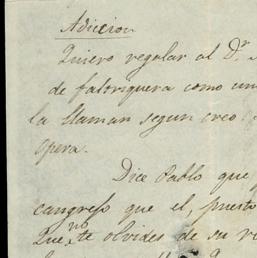 Adiccion
Quiero regular al D.r
de faltriquera como un
la llaman segun creo
opera.
Dice Pablo que
congreso que el, puesto
Que no te olvides de su